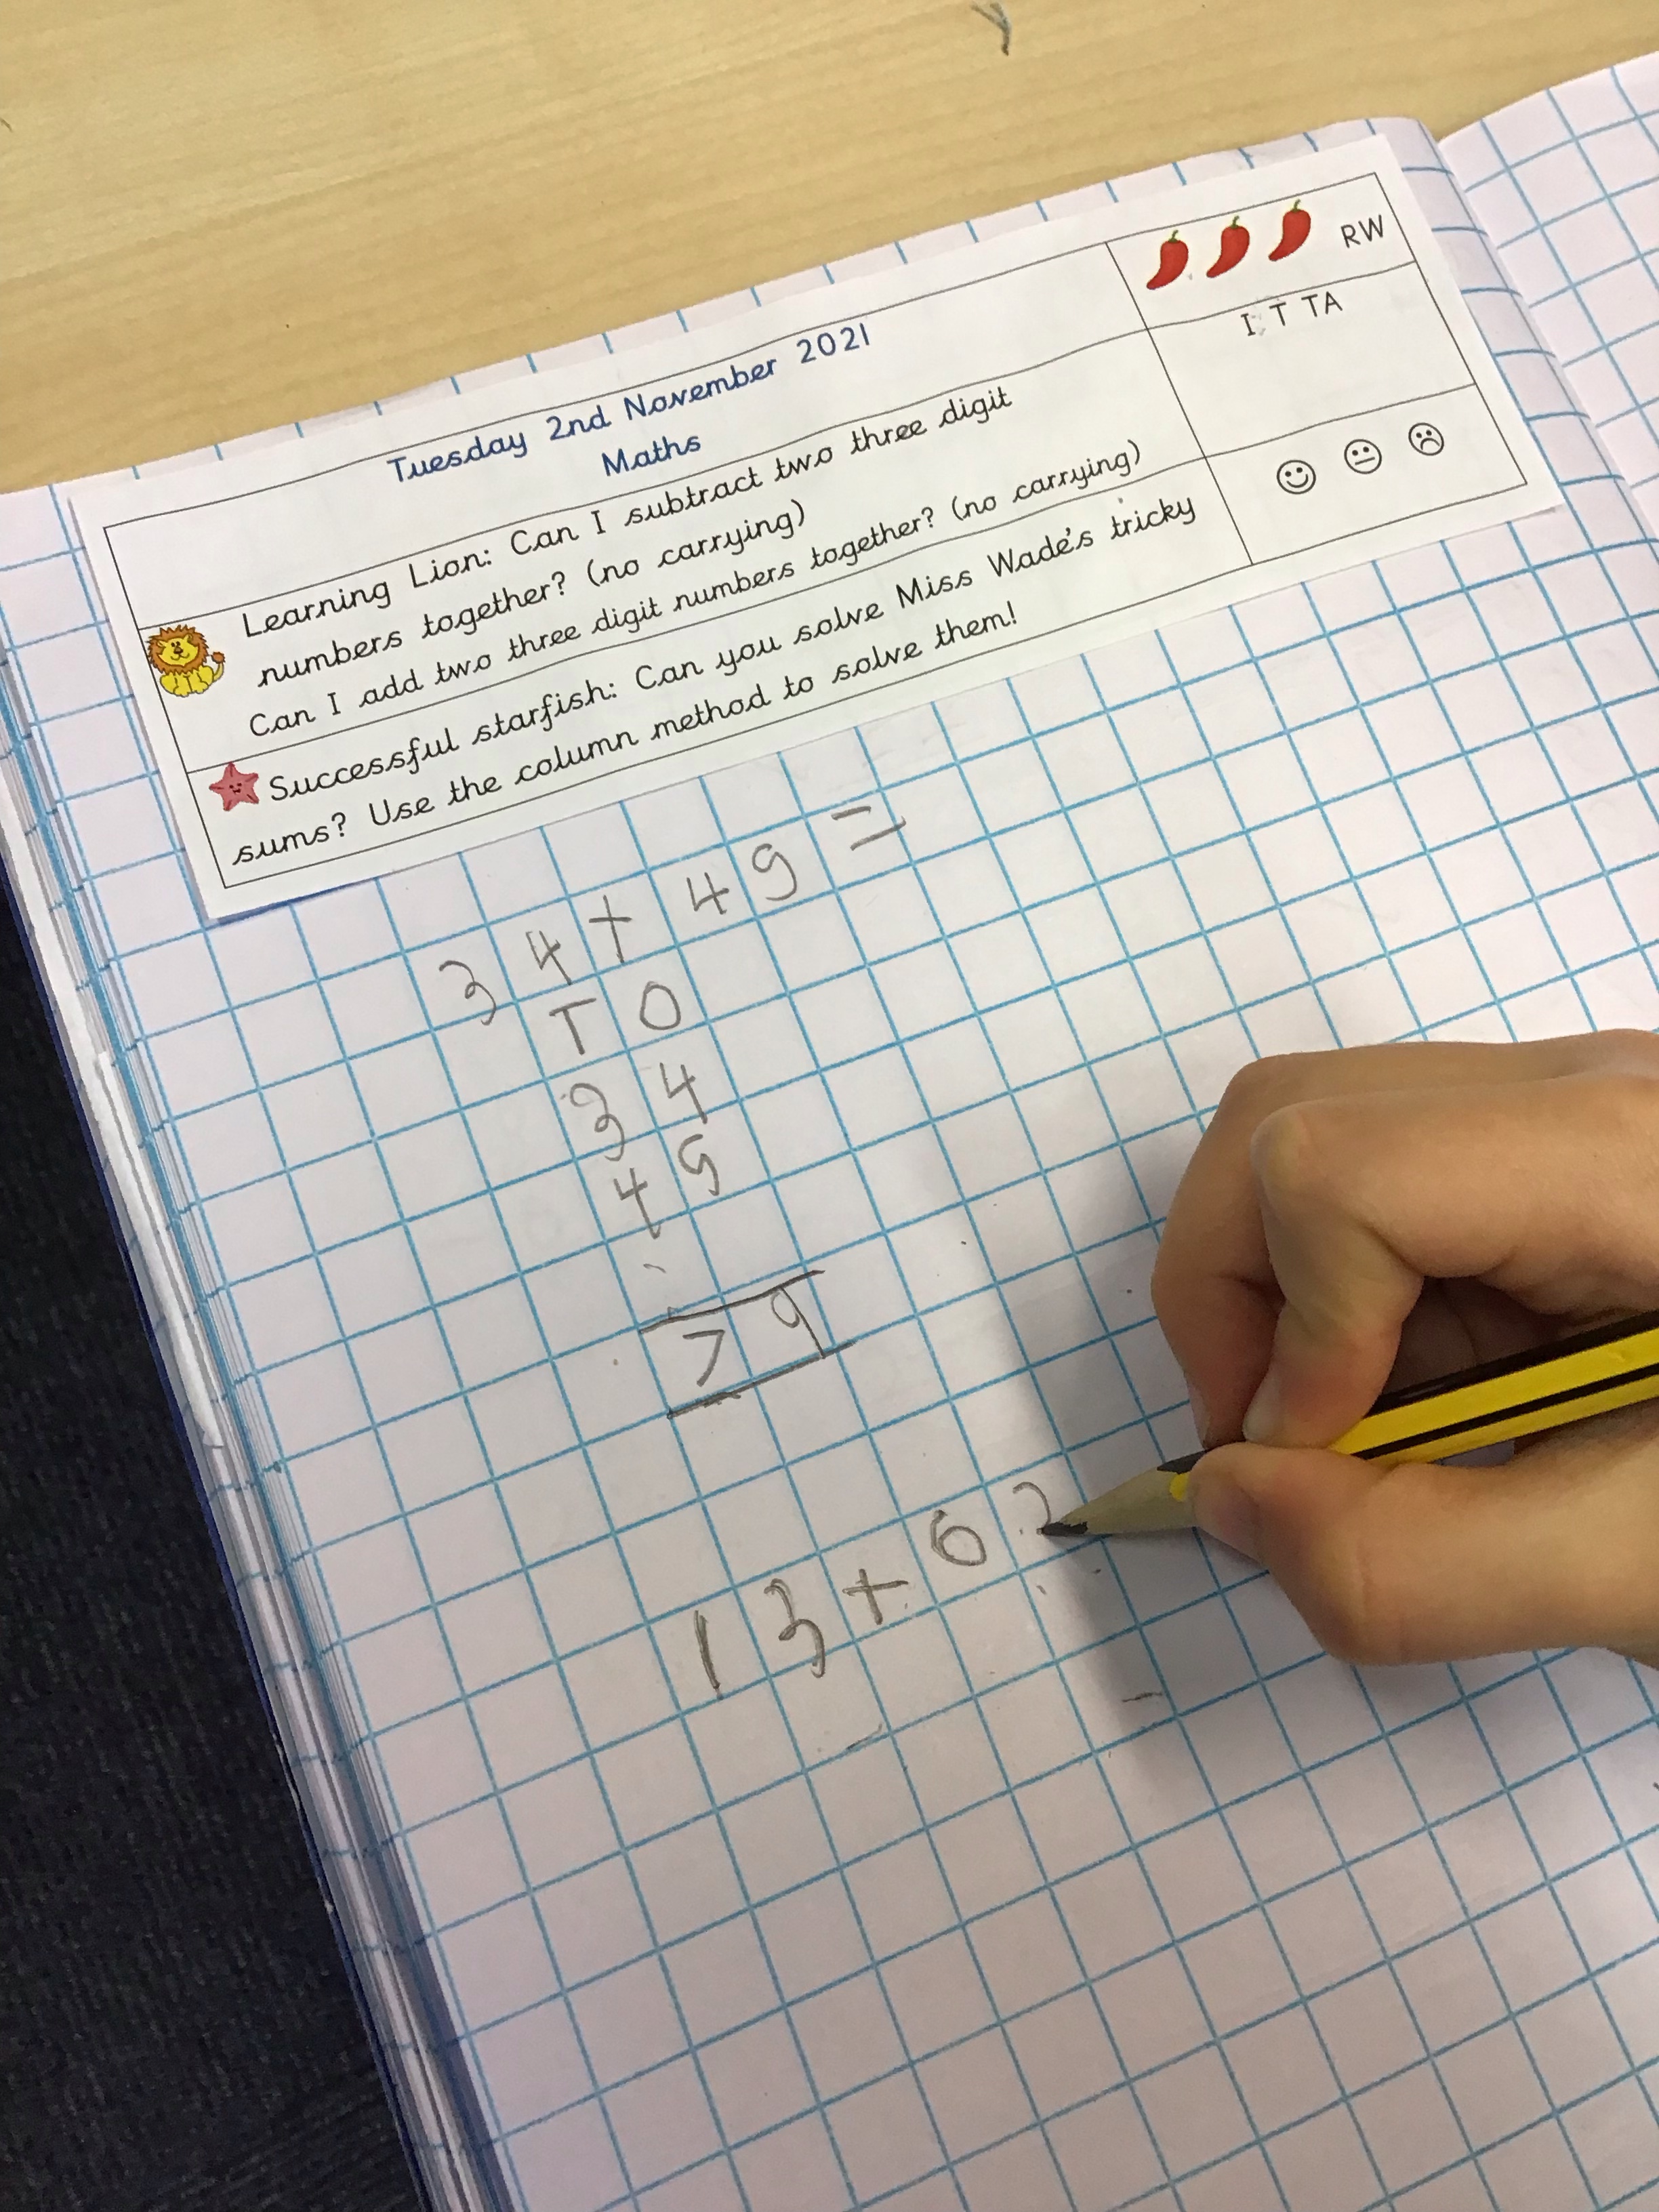 RW
Tuesday 2nd November 2021
Maths
I T TA
Learning Lion: Can I subtract two three digit
numbers together? (no carrying)
Can I add two three digit numbers together? (no carrying)
Successful starfish: Can you solve Miss Wade's tricky
sums? Use the column method to solve them!
34+ 49 =
T O
3 4
4 5
7 9
13+62